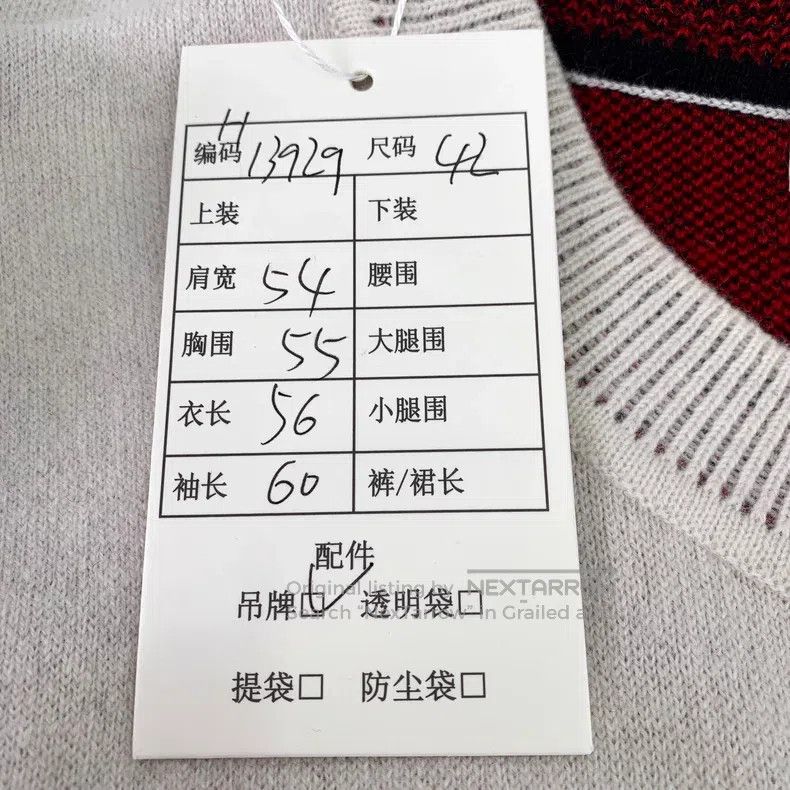 H
编码 13929 尺码 42
上装 下装
肩宽 54 腰围
胸围 55 大腿围
衣长 56 小腿围
袖长 60 裤/裙长
配件
Original listing by NEXTARR
吊牌☑ 透明袋□
Search "NexTarrow" in Grailed a
提袋□ 防尘袋□